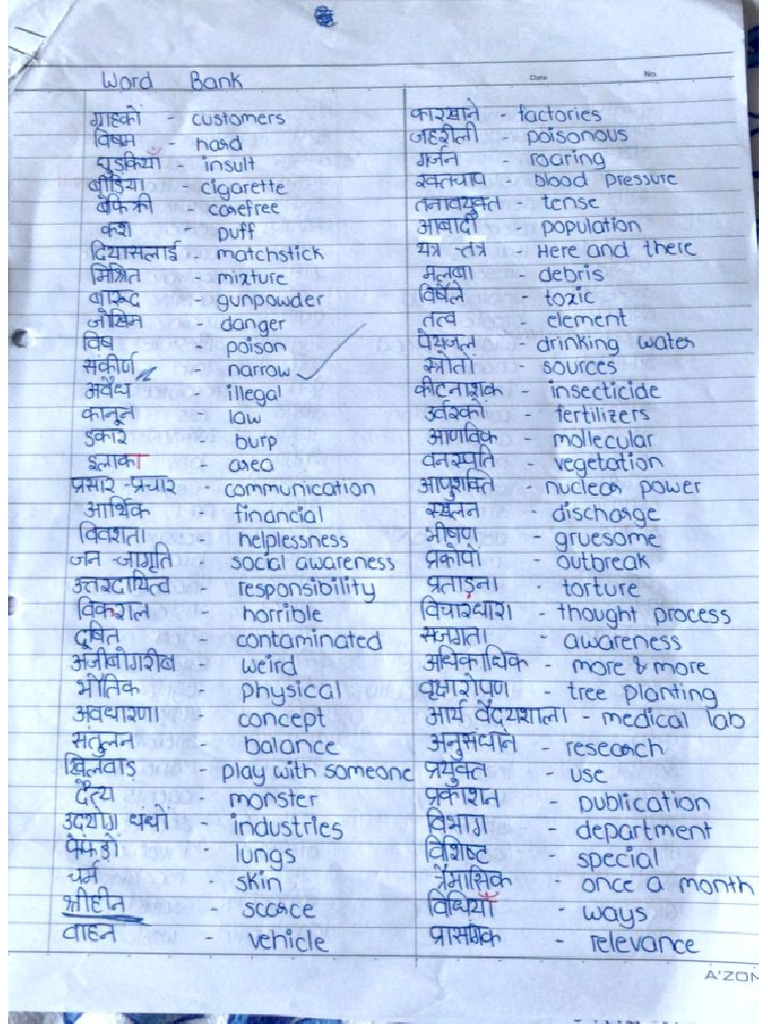 Word Bank
Date No.
ग्राहकों - customers
विषम - hard
घुड़कियाँ - insult
बीडिया - cigarette
बेफिक्री - carefree
कश - puff
दियासलाई - matchstick
मिश्रित - mixture
बारूद - gunpowder
जोखिम - danger
विष - poison
सकीर्ण - narrow
अवैध - illegal
कानून - law
डकार - burp
इलाका - area
प्रसार -प्रचार - communication
आर्थिक - financial
विवशता - helplessness
जन -जागृति - social awareness
उत्तरदायित्व - responsibility
विकराल - horrible
दूषित - contaminated
अजीबोगरीब - weird
भौतिक - physical
अवधारणा - concept
संतुलन - balance
खिलवाड़ - play with someone
दैत्य - monster
उदयोग धंधों - industries
फेफड़ों - lungs
चर्म - skin
श्रीहीन - scarce
वाहन - vehicle
कारखाने - factories
जहरीली - poisonous
गर्जन - roaring
रक्तचाप - blood pressure
तनावयुक्त - tense
आबादी - population
यत्र -तत्र - Here and there
मलबा - debris
विषैले - toxic
तत्व - element
पेयजल - drinking water
स्त्रोतों - sources
कीटनाशक - insecticide
उर्वरकों - fertilizers
आणविक - mollecular
वनस्पति - vegetation
आणुशक्ति - nuclear power
स्खलन - discharge
भीषण - gruesome
प्रकोपों - outbreak
प्रताड़ना - torture
विचारधारा - thought process
सजगता - awareness
अधिकाधिक - more & more
वृक्षारोपण - tree planting
आर्य वैदयशाला - medical lab
अनुसंधान - research
प्रयुक्त - use
प्रकाशन - publication
विभाग - department
विशिष्ट - special
त्रैमासिक - once a month
विधियाँ - ways
प्रासंगिक - relevance